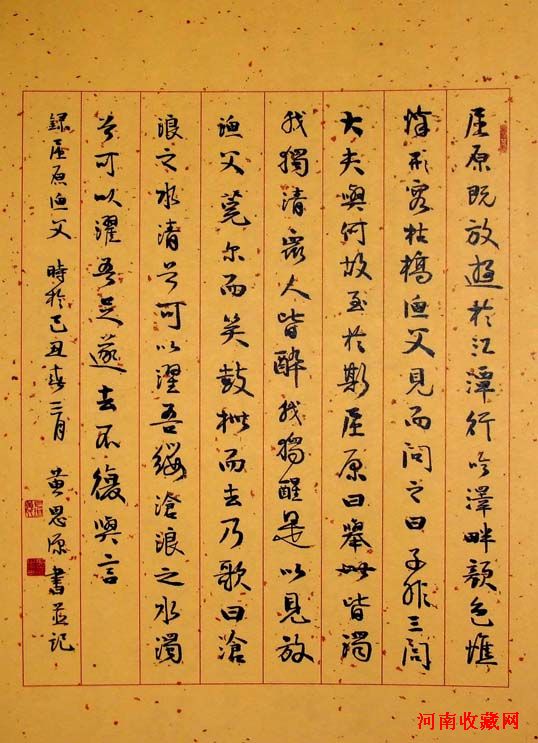 屈原既放遊於江潭行吟澤畔顏色憔
悴形容枯槁漁父見而問之曰子非三閭
大夫與何故至於斯屈原曰舉世皆濁
我獨清衆人皆醉我獨醒是以見放
漁父莞尔而笑鼓枻而去乃歌曰滄
浪之水清兮可以濯吾纓滄浪之水濁
兮可以濯吾足遂去不復與言
録屈原漁父 時於己丑春二月 黄思源書並記
河南收藏网